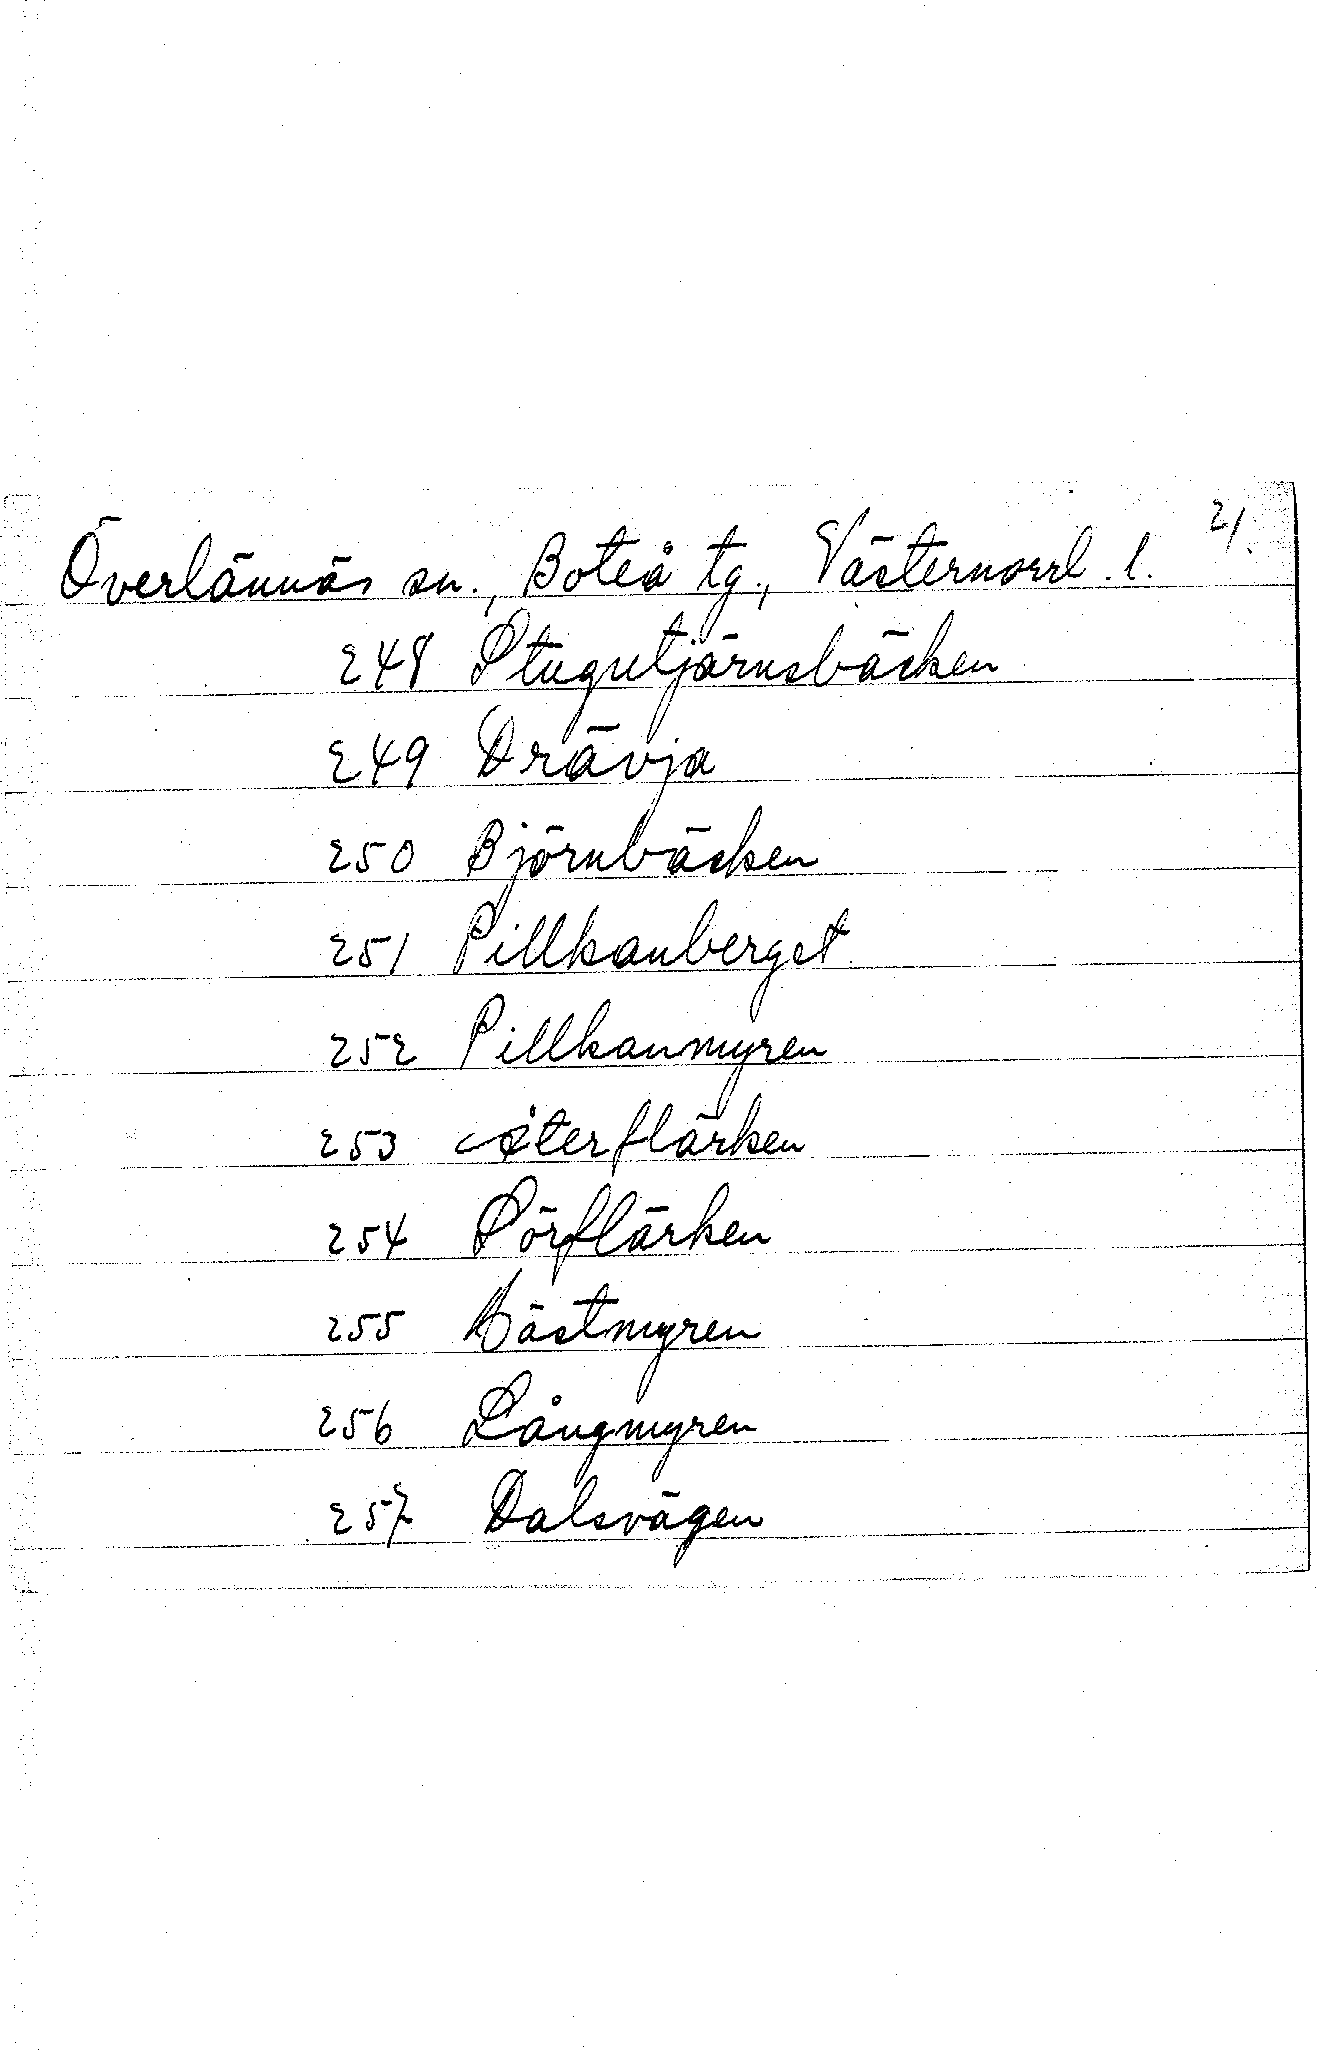 21.
Överlännäs sn., Boteå tg., Västernorrl. l.
248 Stugutjärnsbäcken
249 Drävja
250 Björnbäcken
251 Pillkanberget
252 Pillkanmyren
253 Återflärken
254 Sörflärken
255 Hästmyren
256 Långmyren
257 Dalsvägen